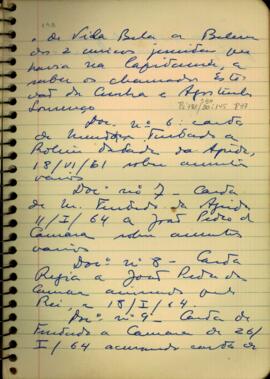 de Vila Bela a Belem
dos 2 unicos jesuitas que
havia na Capitania, a
saber os chamados Este-
vão de Castro e Agostinho
Lourenço
Doc. nº 6: carta
de Mendonça Furtado a
Rolim datada da Ajuda,
18/VI/61 sobre assuntos
varios
Doc. nº 7 - Carta
de M. Furtado, da Ajuda
11/I/64 a João Pedro da
Camara sobre assuntos
varios
Doc. nº 8 - Carta
Regia a João Pedro da
Camara assinada pelo
Rei, a 18/I/64.
Doc. nº 9 - Carta de
Furtado a Camara de 26/
I/64 acusando carta de